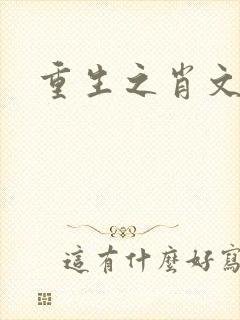 重生之肖文
這有什麼好寫